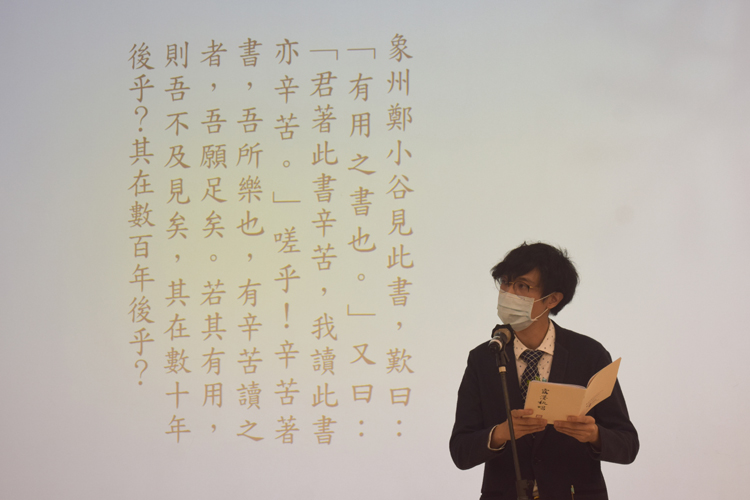 象州鄭小谷見此書，歎曰：
「有用之書也。」又曰：
「君著此書辛苦，我讀此書
亦辛苦。」嗟乎！辛苦著
書，吾所樂也，有辛苦讀之
者，吾願足矣。若其有用，
則吾不及見矣，其在數十年
後乎？其在數百年後乎？